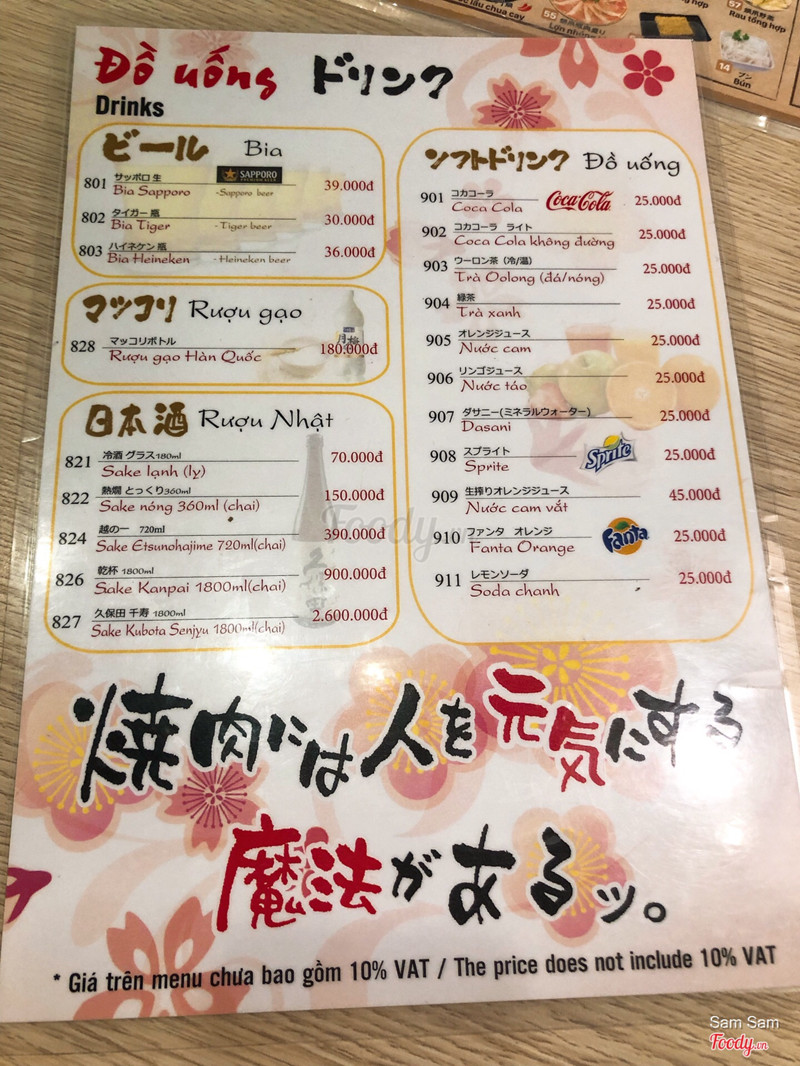 lẩu chua cay
55
Lợn nhúng
57
Rau tổng hợp
14 ブン
Bún
Đồ uống ドリンク
Drinks
ビール Bia
801 サッポロ 生 SAPPORO
Bia Sapporo -Sapporo beer 39.000đ
802 タイガー 瓶
Bia Tiger -Tiger beer 30.000đ
803 ハイネケン 瓶
Bia Heineken -Heineken beer 36.000đ
マッコリ Rượu gạo
828 マッコリボトル
Rượu gạo Hàn Quốc 180.000đ
日本酒 Rượu Nhật
821 冷酒 グラス180ml
Sake lạnh (ly) 70.000đ
822 熱燗 とっくり360ml
Sake nóng 360ml (chai) 150.000đ
824 越の一 720ml
Sake Etsunohajime 720ml(chai) 390.000đ
826 乾杯 1800ml
Sake Kanpai 1800ml(chai) 900.000đ
827 久保田 千寿 1800ml
Sake Kubota Senjyu 1800ml(chai) 2.600.000đ
ソフトドリンク Đồ uống
901 コカコーラ
Coca Cola Coca-Cola 25.000đ
902 コカコーラ ライト
Coca Cola không đường 25.000đ
903 ウーロン茶（冷/温）
Trà Oolong (đá/nóng) 25.000đ
904 緑茶
Trà xanh 25.000đ
905 オレンジジュース
Nước cam 25.000đ
906 リンゴジュース
Nước táo 25.000đ
907 ダサニー(ミネラルウォーター)
Dasani 25.000đ
908 スプライト
Sprite Sprite 25.000đ
909 生搾りオレンジジュース
Nước cam vắt 45.000đ
910 ファンタ オレンジ
Fanta Orange Fanta 25.000đ
911 レモンソーダ
Soda chanh 25.000đ
Foody.vn
焼肉には人を元気にする
魔法があるッ。
* Giá trên menu chưa bao gồm 10% VAT / The price does not include 10% VAT
Sam Sam
Foody.vn